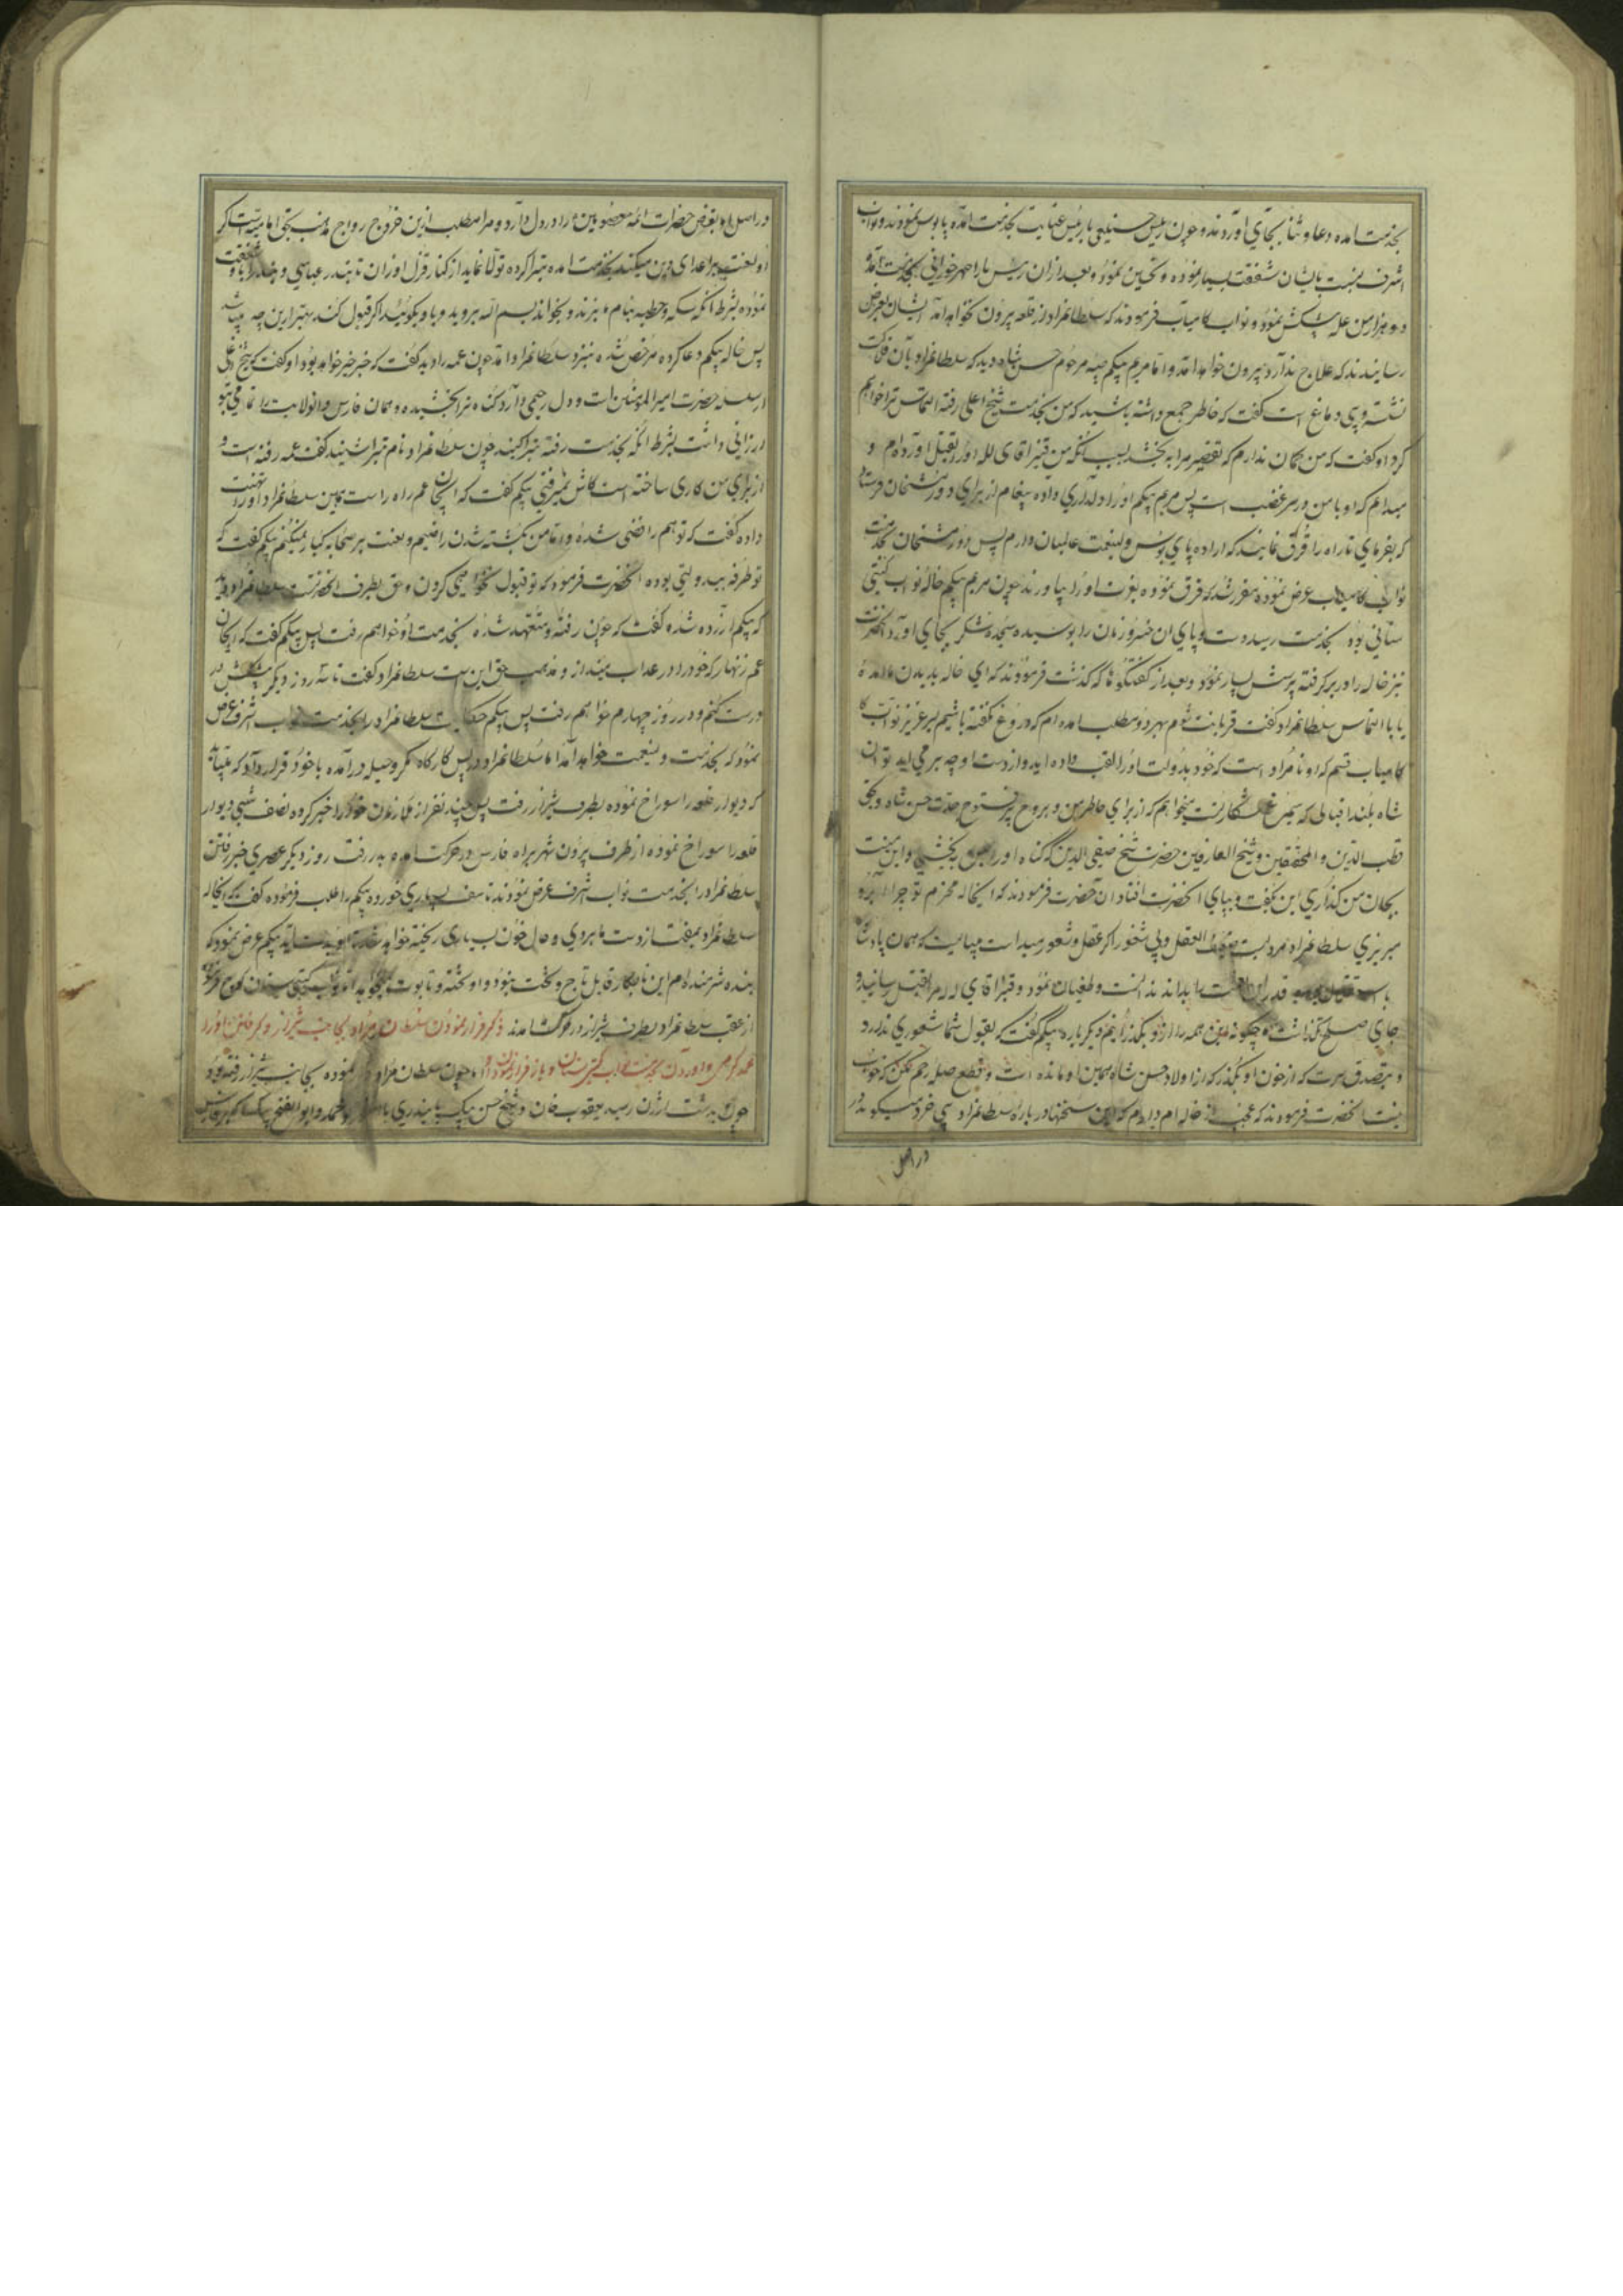 بخدمت امده دعا و ثنا بجای اوردند و چون رئیس حسینعلی با رئیس عنایت بخدمت امده پابوس نمودند و نواب
اشرف نسبت بایشان شفقت بسیار نموده و تحسین نمود و بعد از ان رئیس بخدمت آمد و
دو هزار من غله پیشکش نمود و نواب کامیاب فرمودند که سلطانمراد از قلعه بیرون نخواهد آمد ایشان بعرض
رسانیدند که علاج ندارد بیرون خواهد امد و اما مریم بیکم صبیه مرحوم حسن شاه دید که سلطانمراد بآن فلاکت
نشسته و بی دماغ است گفت که خاطر جمع داشته باشید که من بخدمت شیخ اعلی رفته التماس ترا خواهم
کرد او گفت که من گمان ندارم که تقصیر مرا به بخشد بسبب انکه من قنبر اقای لله او را بقتل اورده ام و
میدانم که او با من در سر غضب است پس مریم بیکم او را دلداری داده پیغام از برای دورمشخان فرستاد
که بفرمای تا راه را قرق نمایند که اراده پای بوس ولینعمت عالمیان دارم پس دورمشخان بخدمت
نواب کامیاب عرض نموده مقرر شد که قرق نموده بعزت او را بیاورند چون مریم بیکم خاله نواب کیتی
ستانی بود بخدمت رسید دست و پای ان خسرو زمان را بوسیده سجده شکر بجای اورد انحضرت
نیز خاله را در بر کرفته پرسش بسیار نمود و بعد از گفتگوها که گذشت فرمودند که ای خاله بدیدن ما امده
یا با التماس سلطانمراد گفت قربانت شوم بهر دو مطلب امده ام که دروغ نگفته باشیم بسر عزیز نواب
کامیاب قسم که او نامراد است که خود بدولت او را لقب داده اید و از دست او چه بر می اید تو ان
شاه بلند اقبالی که سیمرغ شکار تست میخواهم که از برای خاطر من و بروح پر فتوح جدت حسن شاه و بحق
قطب الدین و المحققین و شیخ العارفین حضرت شیخ صفی الدین که گناه او را بمن بخشی و این منت
بجان من گذاری این بگفت و بپای انحضرت افتاد ان حضرت فرمودند که ایخاله محترم تو چرا آبرو
میریزی سلطانمراد مردیست ضعیف العقل و بی شعور اگر عقل و شعور میداشت میبایست که همان پادشا
قدر این نعمت را بداند ندانست و طغیان نمود و قنبر اقای لله مرا بقتل رسانید و
جای صلح نگذاشت چگونه من همه را از او بگذرانم دیگر باره بیکم گفت که بقول شما شعوری ندارد
و بتصدق سرت که از خون او بگذر که از اولاد حسن شاه همین او مانده است و قطع صله رحم مکن که خوب
نیست انحضرت فرمودند که عجب از خاله ام دارم که این سخنها در باره سلطانمراد بی خرد میگوید
در اصل
در اصل او بغض حضرات ائمه معصومین را در دل دارد و مرا مطلب ازین خروج رواج مذهب بحق امامیه است اگر
او لعنت بر اعدای دین میکند بخدمت امده تبرا کرده تولا نماید از کنار قزل اوزان تا بندر عباسی و بغداد را باو شفقت
نموده بشرط انکه سکه و خطبه بنام ما بزند و بخواند بسم الله بروید و باو بگوئید اگر قبول کند بهتر ازین چه میباشد
پس خاله بیکم دعا کرده مرخص شده بنزد سلطانمراد آمد چون عمه را دید گفت که خبر خیر خواهد بود او گفت که شیخ اعلی
از سلسله حضرت امیرالمومنین است و دل رحیمی دارد گناه ترا بخشیده و همان فارس و انولایت را تمامی بتو
ارزانی داشت بشرط انکه بخدمت رفته تبرا کنید چون سلطانمراد نام تبرا شنید گفت عمه رفته است و
از برای من کاری ساخته است کاش نمیرفتی بیکم گفت که ایجان عم راه راست همین سلطانمراد او را تهمت
داده گفت که تو هم رافضی شده و اما من بکشته شدن راضیم و لعنت بر صحابه کبار نمیکنم بیکم گفت که
تو طرفه بیدولتی بوده انحضرت فرمود که تو قبول نخواهی کردن و حق بطرف انحضرتست سلطانمراد دید
که بیکم ازرده شده گفت که چون رفته و متعهد شده بخدمت او خواهم رفت پس بیکم گفت که ایجان
عم زنهار که خود را در عذاب مینداز و مذهب حق این است سلطانمراد گفت تا سه روز دیگر پیشکش
درست کنم و در روز چهارم خواهم رفت پس بیکم حکایت سلطانمراد را بخدمت نواب اشرف عرض
نمود که بخدمت ولینعمت خواهد آمد اما سلطانمراد در پس کارگاه مکر و حیله در آمده با خود قرار داد که میباید
که دیوار قلعه را سوراخ نموده بطرف شیراز رفت پس چند نفر از ملازمان خود را خبر کرده نصف شبی دیوار
قلعه را سوراخ نموده از طرف بیرون شهر براه فارس در حرکت امده بدر رفت روز دیگر عصری خبر رفتن
سلطانمراد را بخدمت نواب اشرف عرض نمودند تاسف بسیاری خورده بیکم را طلب فرموده گفت که ایخاله
سلطانمراد بمفت از دست ما بدر رفت و حال خون بسیاری ریخته خواهد شد بیکم عرض نمود که
بنده شرمنده ام این نابکار قابل تاج و تخت نبود و او تخته و تابوت میخواهد نواب کیتی ستان کوچ فرموده
از عقب سلطانمراد بطرف شیراز در حرکت امدند ذکر فرار نمودن سلطان مراد بجانب شیراز و گرفتن او را
و اوردن بخدمت نواب کیتی ستان و باز فرار نمودن او چون سلطان مراد فرار نموده بجانب شیراز رفته بود
چون بدشت ارژن رسید یعقوب خان و شیخ حسن بیک بایندری با محمد و ابوالفتح بیک